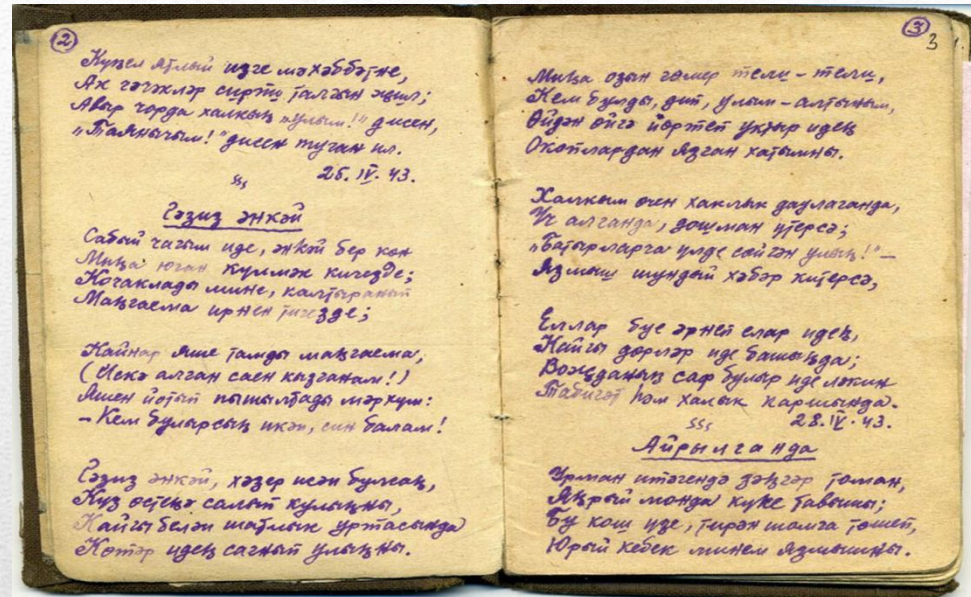 2
Күңел ятлый изге мәхәббәтне,
Ак чәчәкләр сирпи талгын җил;
Авыр чорда халкың „улым!“ дисен,
„Таянычым!“ дисен туган ил.
25. IV. 43.
Газиз әнкәй
Сабый чагым иде, әнкәй бер көн
Миңа юган күлмәк кигезде;
Кочаклады мине, калтыранып
Маңгаема ирнен тигезде;
Кайнар яше тамды маңгаема,
(Искә алган саен кызганам!)
Яшен йотып пышылдады мәрхүм:
– Кем булырсың икән, син балам!
Газиз әнкәй, хәзер исән булсаң,
Күз өстеңә салып кулыңны,
Кайгы белән шатлык уртасында
Көтәр идең сагнып улыңны.
3
3
Миңа озын гомер тели-тели,
Кем булды, дип, улым-алтыным,
Өйдән өйгә йөртеп укытыр идең
Окоплардан язган хатымны.
Халкым өчен хаклык даулаганда,
Үч алганда, дошман үтерсә;
„Батырларча үлде сөйгән улың!“ –
Язмыш шундый хәбәр китерсә,
Еллар буе әрнеп елар идең,
Кайгы дөрләр иде башыңда;
Вожданың саф булыр иде ләкин
Табигәт һәм халык каршында.
28. IV. 43.
Айрылганда
Урман итәгендә зәңгәр томан,
Яңрый монда күке тавышы;
Бу кош үзе, тирән шомга төшеп,
Юрый кебек минем язмышны.